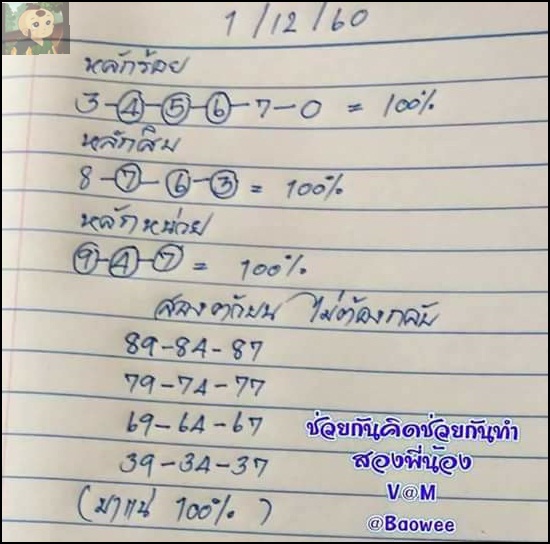 1/12/60
หลักร้อย
3-4-5-6-7-0 = 100%
หลักสิบ
8-7-6-3 = 100%
หลักหน่วย
9-4-7 = 100%
สองตัวบน ไม่ต้องกลับ
89-84-87
79-74-77
69-64-67
39-34-37
(มาแน่ 100%)
ช่วยกันคิดช่วยกันทำ
สองพี่น้อง
V@M
@Baowee